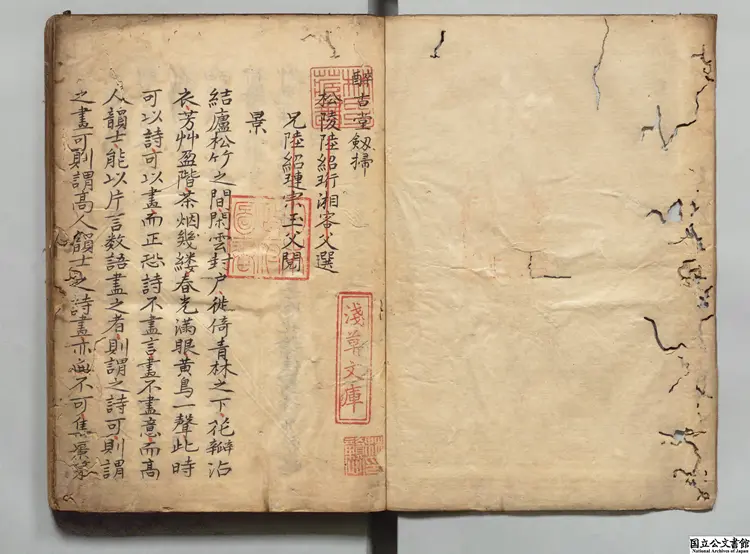 醉古堂劔掃
松陵陸紹珩湘客父選
兄陸紹璉宗玉父閱
景
結廬松竹之間閑雲封户徙倚青林之下花瓣沾
衣芳艸盈階茶烟幾縷春光滿眼黄鳥一聲此時
可以詩可以畫而正恐詩不盡言畫不盡意而高
人韻士能以片言数語盡之者則謂之詩可則謂
之畫可則謂高人韻士之詩畫亦無不可集景
淺草文庫
国立公文書館
National Archives of Japan